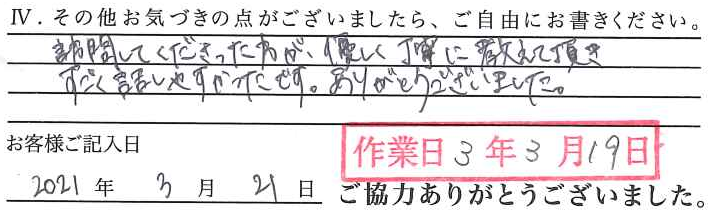 Ⅳ．その他お気づきの点がございましたら、ご自由にお書きください。
訪問してくださった方が、優しく丁寧に教えて頂き
すごく話しやすかったです。ありがとうございました。
お客様ご記入日
作業日3年3月19日
2021年3月21日
ご協力ありがとうございました。